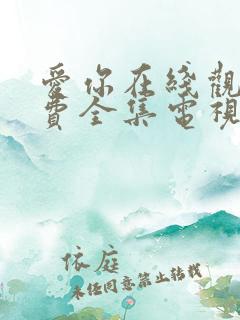 愛你在綫觀
費全集電視
依庭
未任同意禁止转载